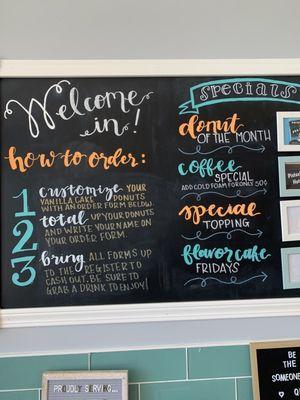 Welcome
in!
how to order:
1 customize YOUR
VANILLA CAKE DONUTS
WITH AN ORDER FORM BELOW.
2 total UP YOUR DONUTS
AND WRITE YOUR NAME ON
YOUR ORDER FORM.
3 bring ALL FORMS UP
TO THE REGISTER TO
CASH OUT. BE SURE TO
GRAB A DRINK TO ENJOY!
Specials
donut
OF THE MONTH
coffee
SPECIAL
ADD COLD FOAM FOR ONLY 50¢
special
TOPPING
Flavor cake
FRIDAYS
PROUDLY SERVING...
BE THE
SOMEONE